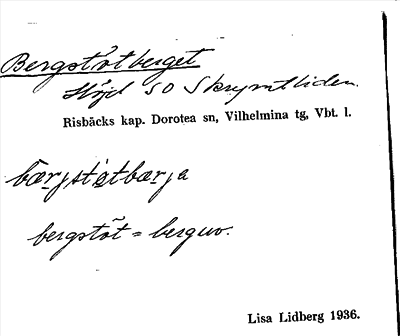 Bergstòtberget
Höjd SO Skrymtliden.
Risbäcks kap. Dorotea sn, Vilhelmina tg, Vbt. l.
bærjstòtbærja
bergstöt = berguv.
Lisa Lidberg 1936.